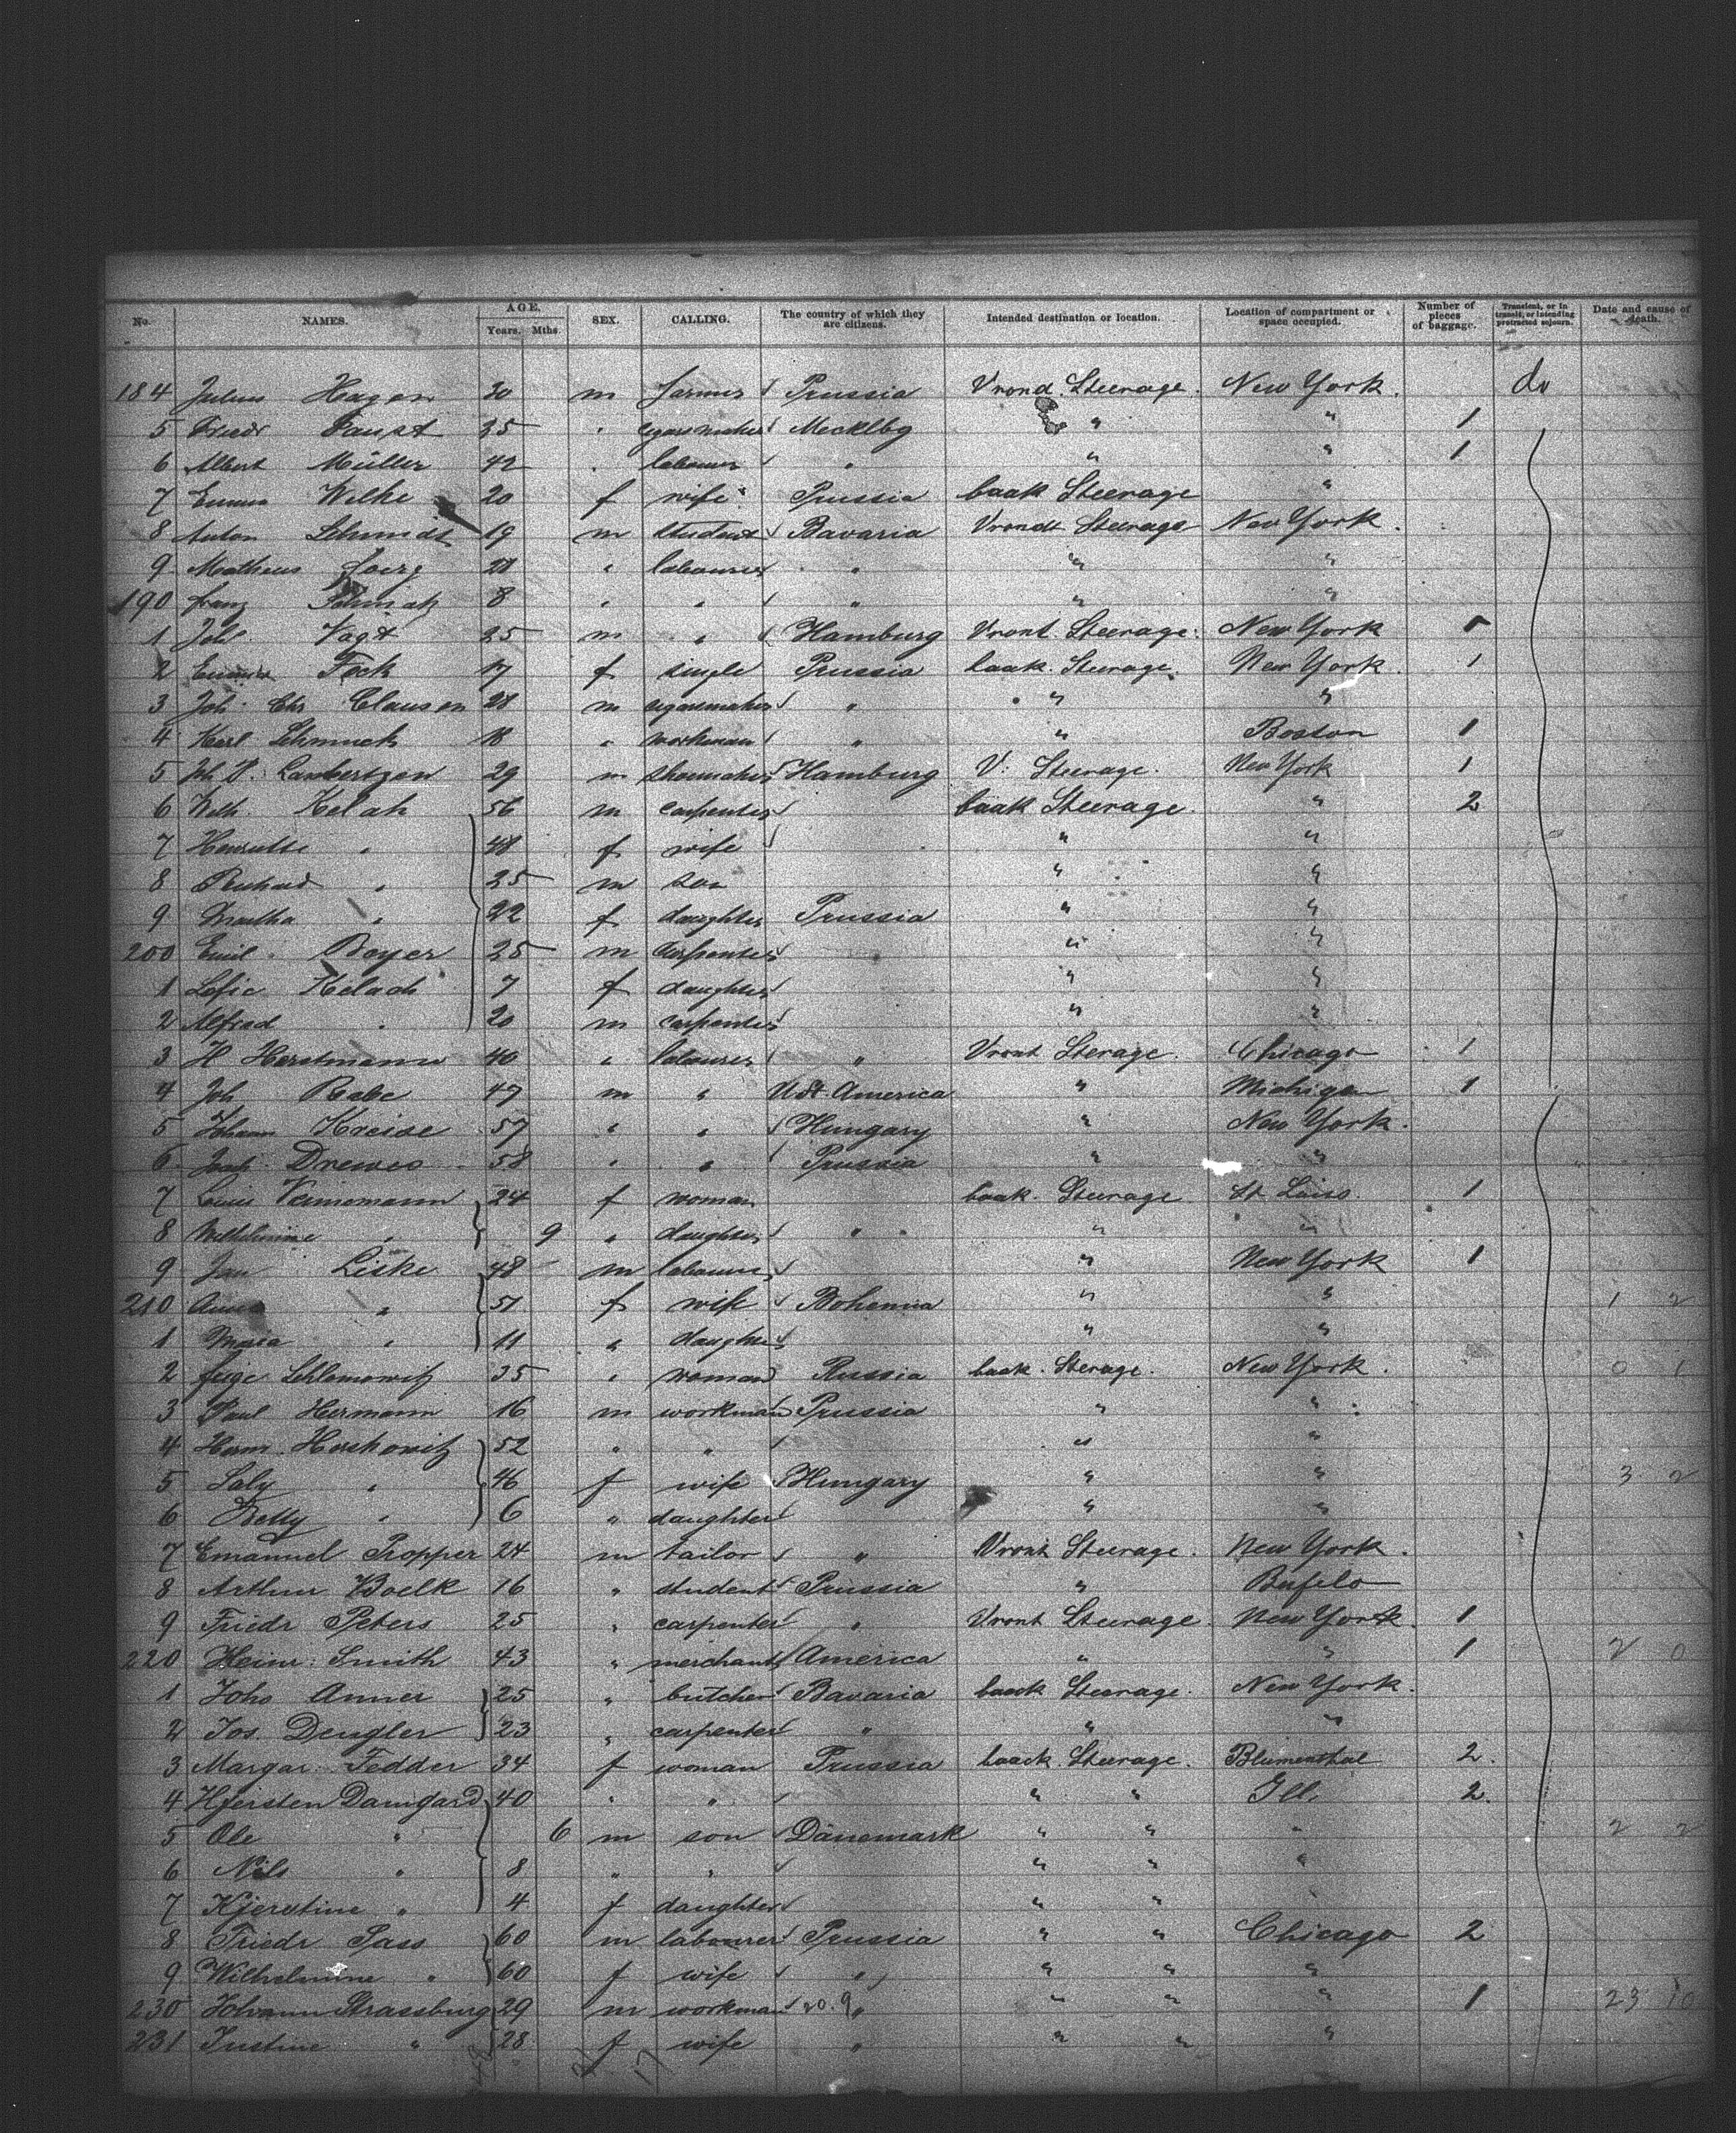 No. NAMES. AGE. Years. Mths. SEX. CALLING. The country of which they are citizens. Intended destination or location. Location of compartment or space occupied. Number of pieces of baggage. Transient, or in transit, or intending protracted sojourn. Date and cause of death.
184 Julius Hagen 30 m farmer Prussia Vrond. Steerage. New York. do
5 Friedr Faust 35 " Mecklbg " " 1
6 Albert Müller 42 " labourer " " " 1
7 Emma Wilke 20 f wife Prussia baak Steerage "
8 Anton Schmidt 19 m student Bavaria Vrondt Steerage New York.
9 Matheus 28 " labourer " " "
190 Franz 8 " " " " "
1 Joh. Vagt 25 m " Hamburg Vront. Steerage. New York
2 Fock 17 f single Prussia baak. Steerage. New York. 1
3 Joh. Chr Clausen 28 m cigarmaker " " "
4 Karl Schmuck 18 " workman " " Boston 1
5 Lambertzen 29 m shoemaker Hamburg V: Steerage. New York 1
6 Wilh. Kelah 56 m carpenter baak Steerage. " 2
7 Henriette " 48 f wife " "
8 Richard " 25 m son " "
9 Martha " 22 f daughter Prussia " "
200 Emil Beyer 25 m carpenter " "
1 Sofie Kelach 7 f daughter " "
2 Alfred " 20 m carpenter " "
3 H Horstmann 40 " labourer " Vront Sterage. Chicago 1
4 Joh Rabe 47 m " U St. America " Michigan 1
5 Johann Kreise 57 " " Hungary " New York.
6 Drewes 58 " " Prussia " "
7 Louis 24 f woman baak. Steerage St Louis. 1
8 Wilhelmine " 9 " daughter " " "
9 Jan Liske 48 m labourer " New York 1
210 Anna " 51 f wife Bohemia " " 1 2
1 Maria " 11 " daughter " "
2 Feige Schlomowitz 35 " woman Russia baak. Sterage. New York. 0 1
3 Paul Hermann 16 m workman Prussia " "
4 Herm. Herskowitz 52 " " " "
5 Saly " 46 f wife Hungary " " 3 2
6 Betty " 6 " daughter " "
7 Emanuel Propper 24 m tailor " Vront Steerage. New York.
8 Arthur Boelk 16 " student Prussia " Bufelo
9 Friedr Peters 25 " carpenter " Vront Steerage. New York. 1
220 Heinr. Smith 43 " merchant America " " 1 2 0
1 Johs Anner 25 " butcher Bavaria baack Steerage. New York.
2 Jos. Dengler 23 " carpenter " " "
3 Margar. Fedder 34 f woman Prussia baack. Steerage. Blumenthal 2.
4 Hjersten Damgard 40 " " " " Ill. 2.
5 Ole " 6 m son Dänemark " " " 2 2
6 Nils " 8 " " " " "
7 Kjerstine " 4 f daughter " " "
8 Friedr Pass 60 m labourer Prussia " " Chicago 2
9 Wilhelmine " 60 f wife " " " "
230 Johann Strassburg 29 m workman 20.9 " " " " 1 23 10
231 Justine " 28 f wife " " " "
17